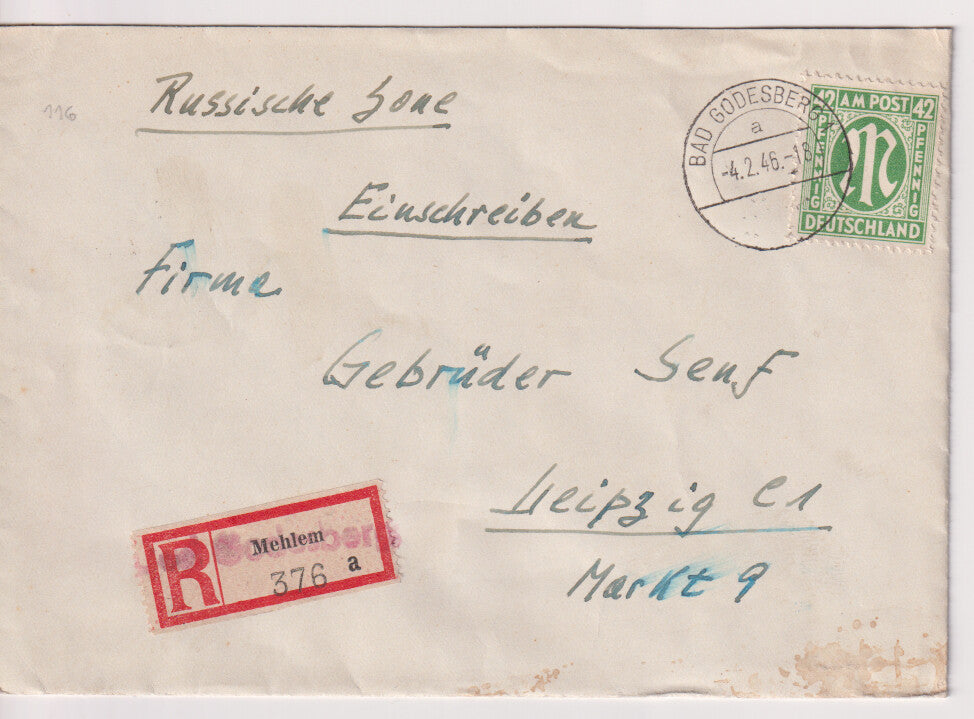 116
Russische Zone
BAD GODESBERG
a
-4.2.46.-18
42 AM POST 42
PFENNIG
PFENNIG
M
DEUTSCHLAND
Einschreiben
Firma
Gebrüder Senf
Leipzig C1
Markt 9
R
Mehlem
376 a